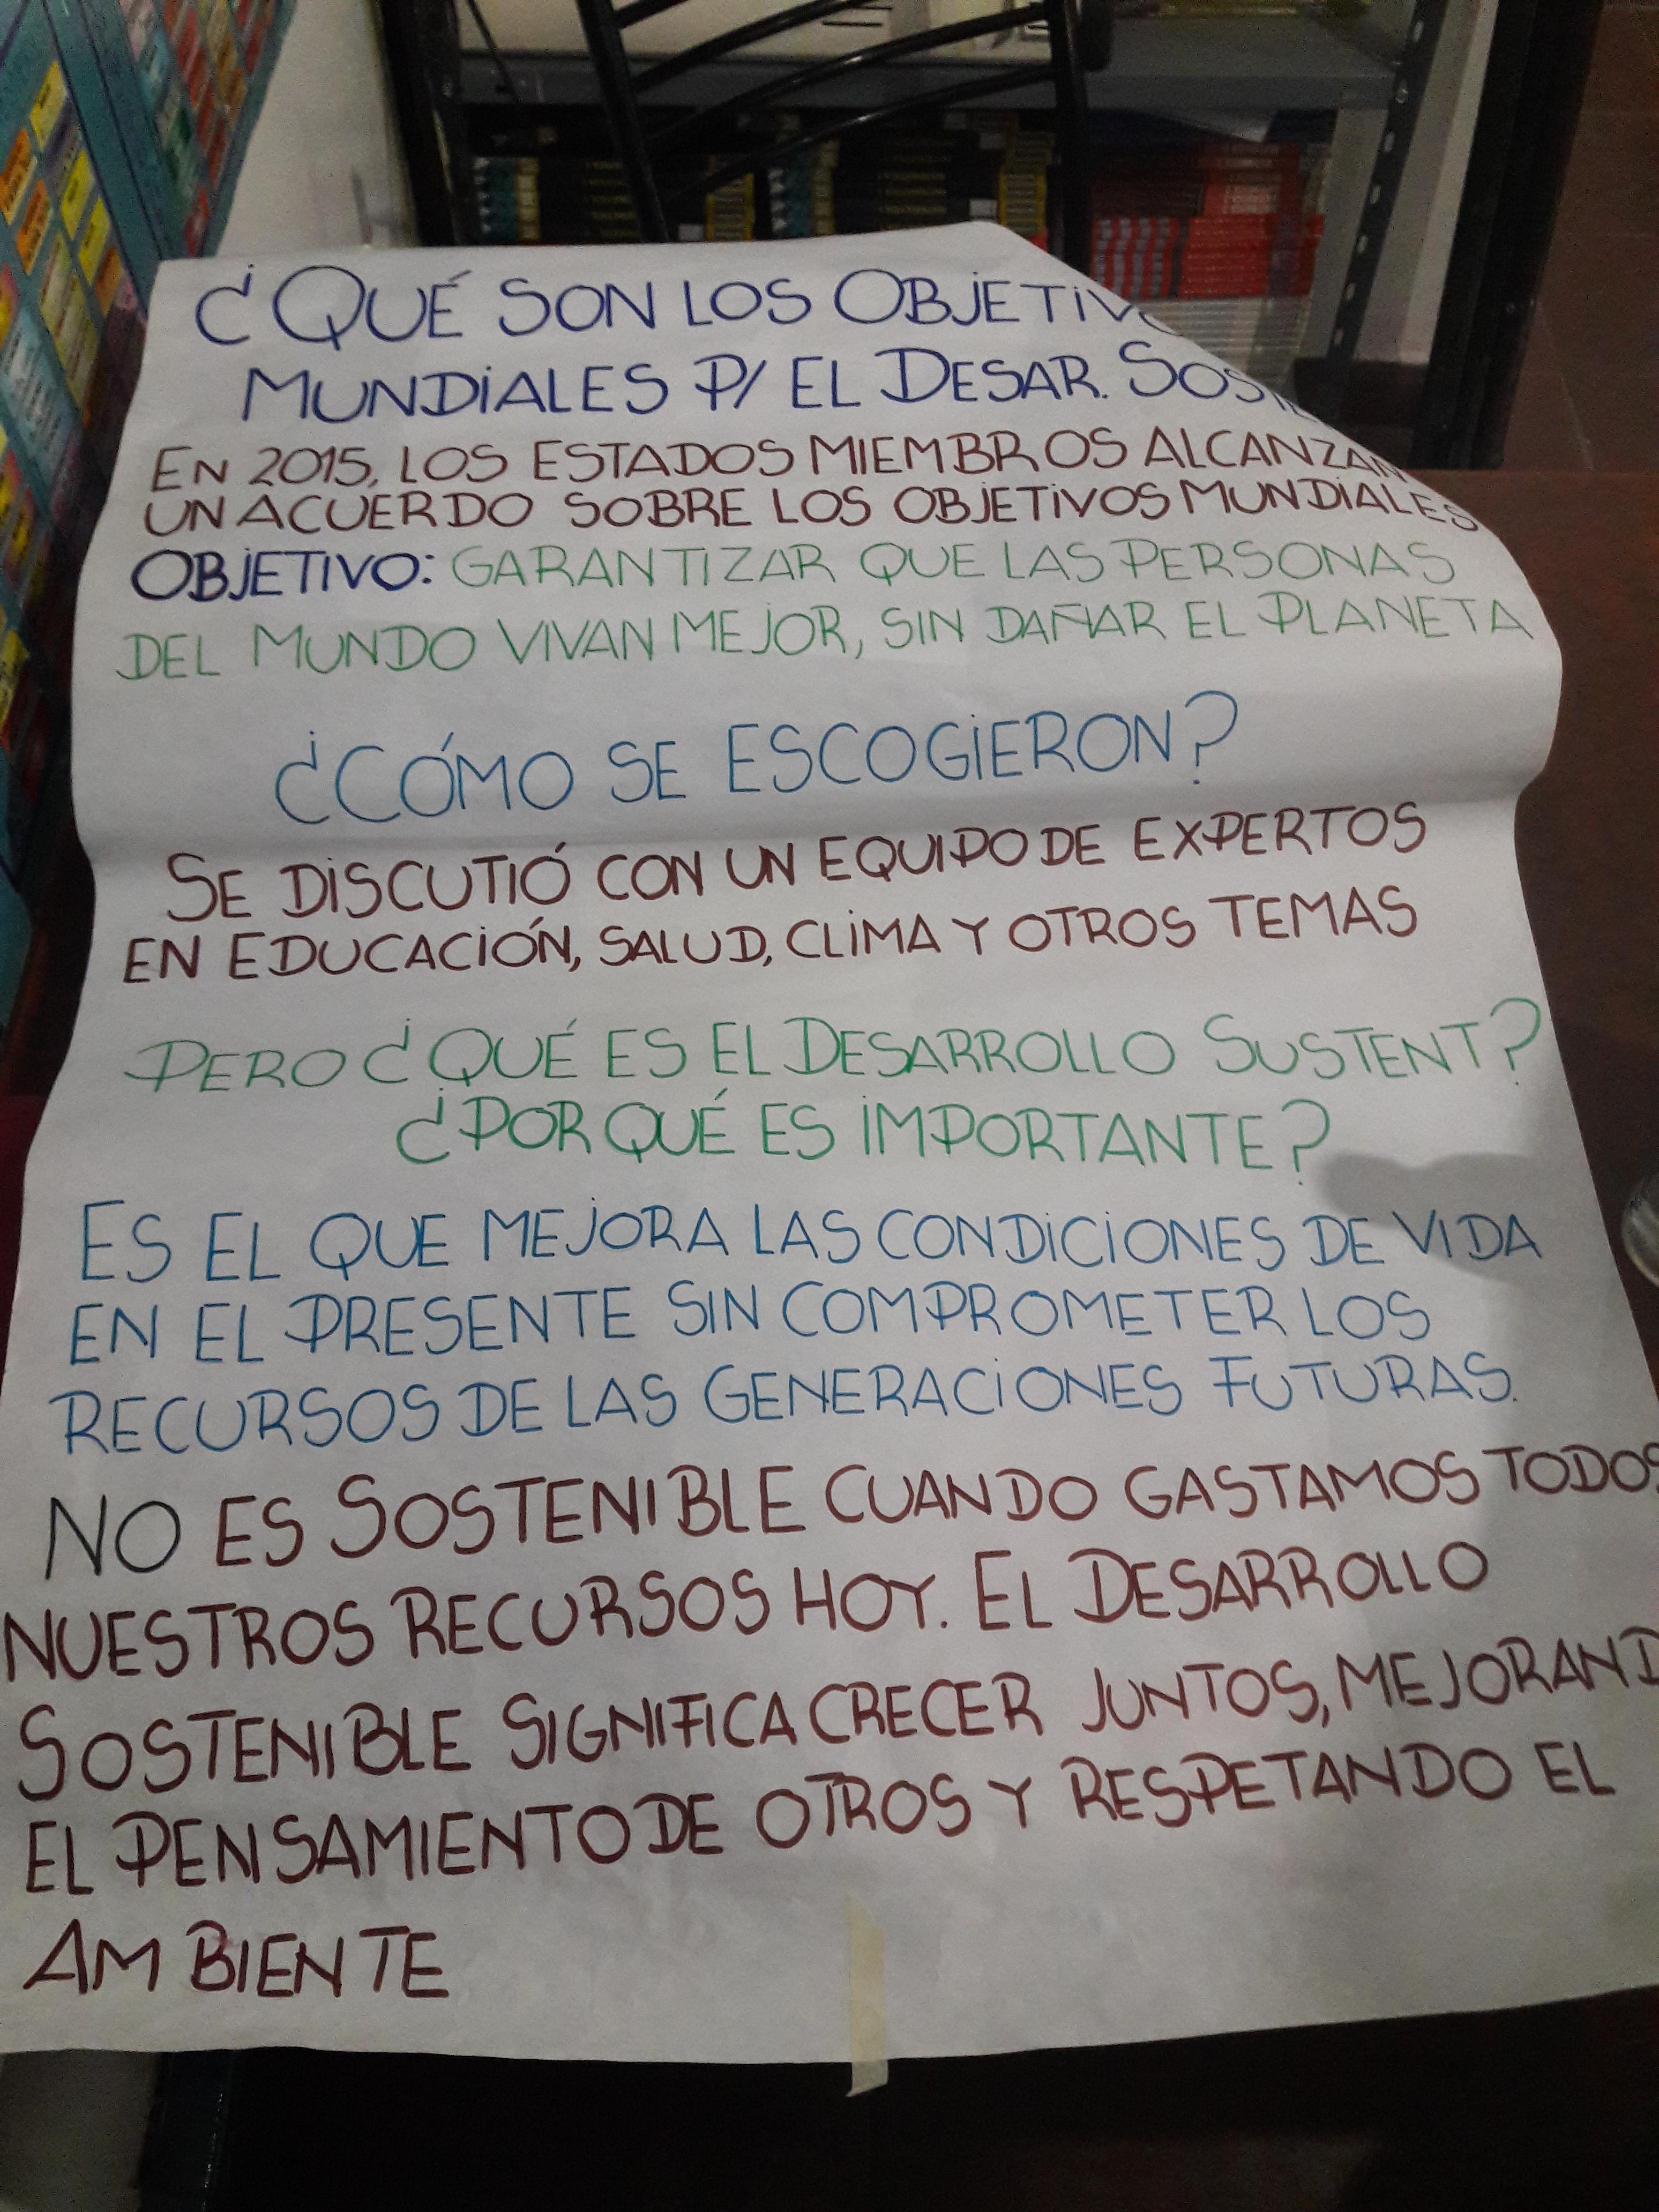 ¿QUÉ SON LOS OBJETIV
MUNDIALES P/ EL DESAR. SOSTE
EN 2015, LOS ESTADOS MIEMBROS ALCANZAN
UN ACUERDO SOBRE LOS OBJETIVOS MUNDIALES
OBJETIVO: GARANTIZAR QUE LAS PERSONAS
DEL MUNDO VIVAN MEJOR, SIN DAÑAR EL PLANETA
¿CÓMO SE ESCOGIERON?
SE DISCUTIÓ CON UN EQUIPO DE EXPERTOS
EN EDUCACIÓN, SALUD, CLIMA Y OTROS TEMAS
PERO ¿QUÉ ES EL DESARROLLO SUSTENT?
¿POR QUÉ ES IMPORTANTE?
ES EL QUE MEJORA LAS CONDICIONES DE VIDA
EN EL PRESENTE SIN COMPROMETER LOS
RECURSOS DE LAS GENERACIONES FUTURAS.
NO ES SOSTENIBLE CUANDO GASTAMOS TODOS
NUESTROS RECURSOS HOY. EL DESARROLLO
SOSTENIBLE SIGNIFICA CRECER JUNTOS, MEJORAND
EL PENSAMIENTO DE OTROS Y RESPETANDO EL
AMBIENTE